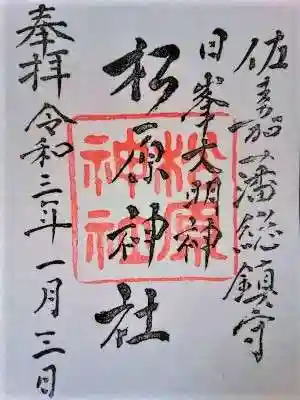 佐嘉藩総鎮守
日峯大明神
松原神社
松原
神社
奉拝
令和三年一月三日